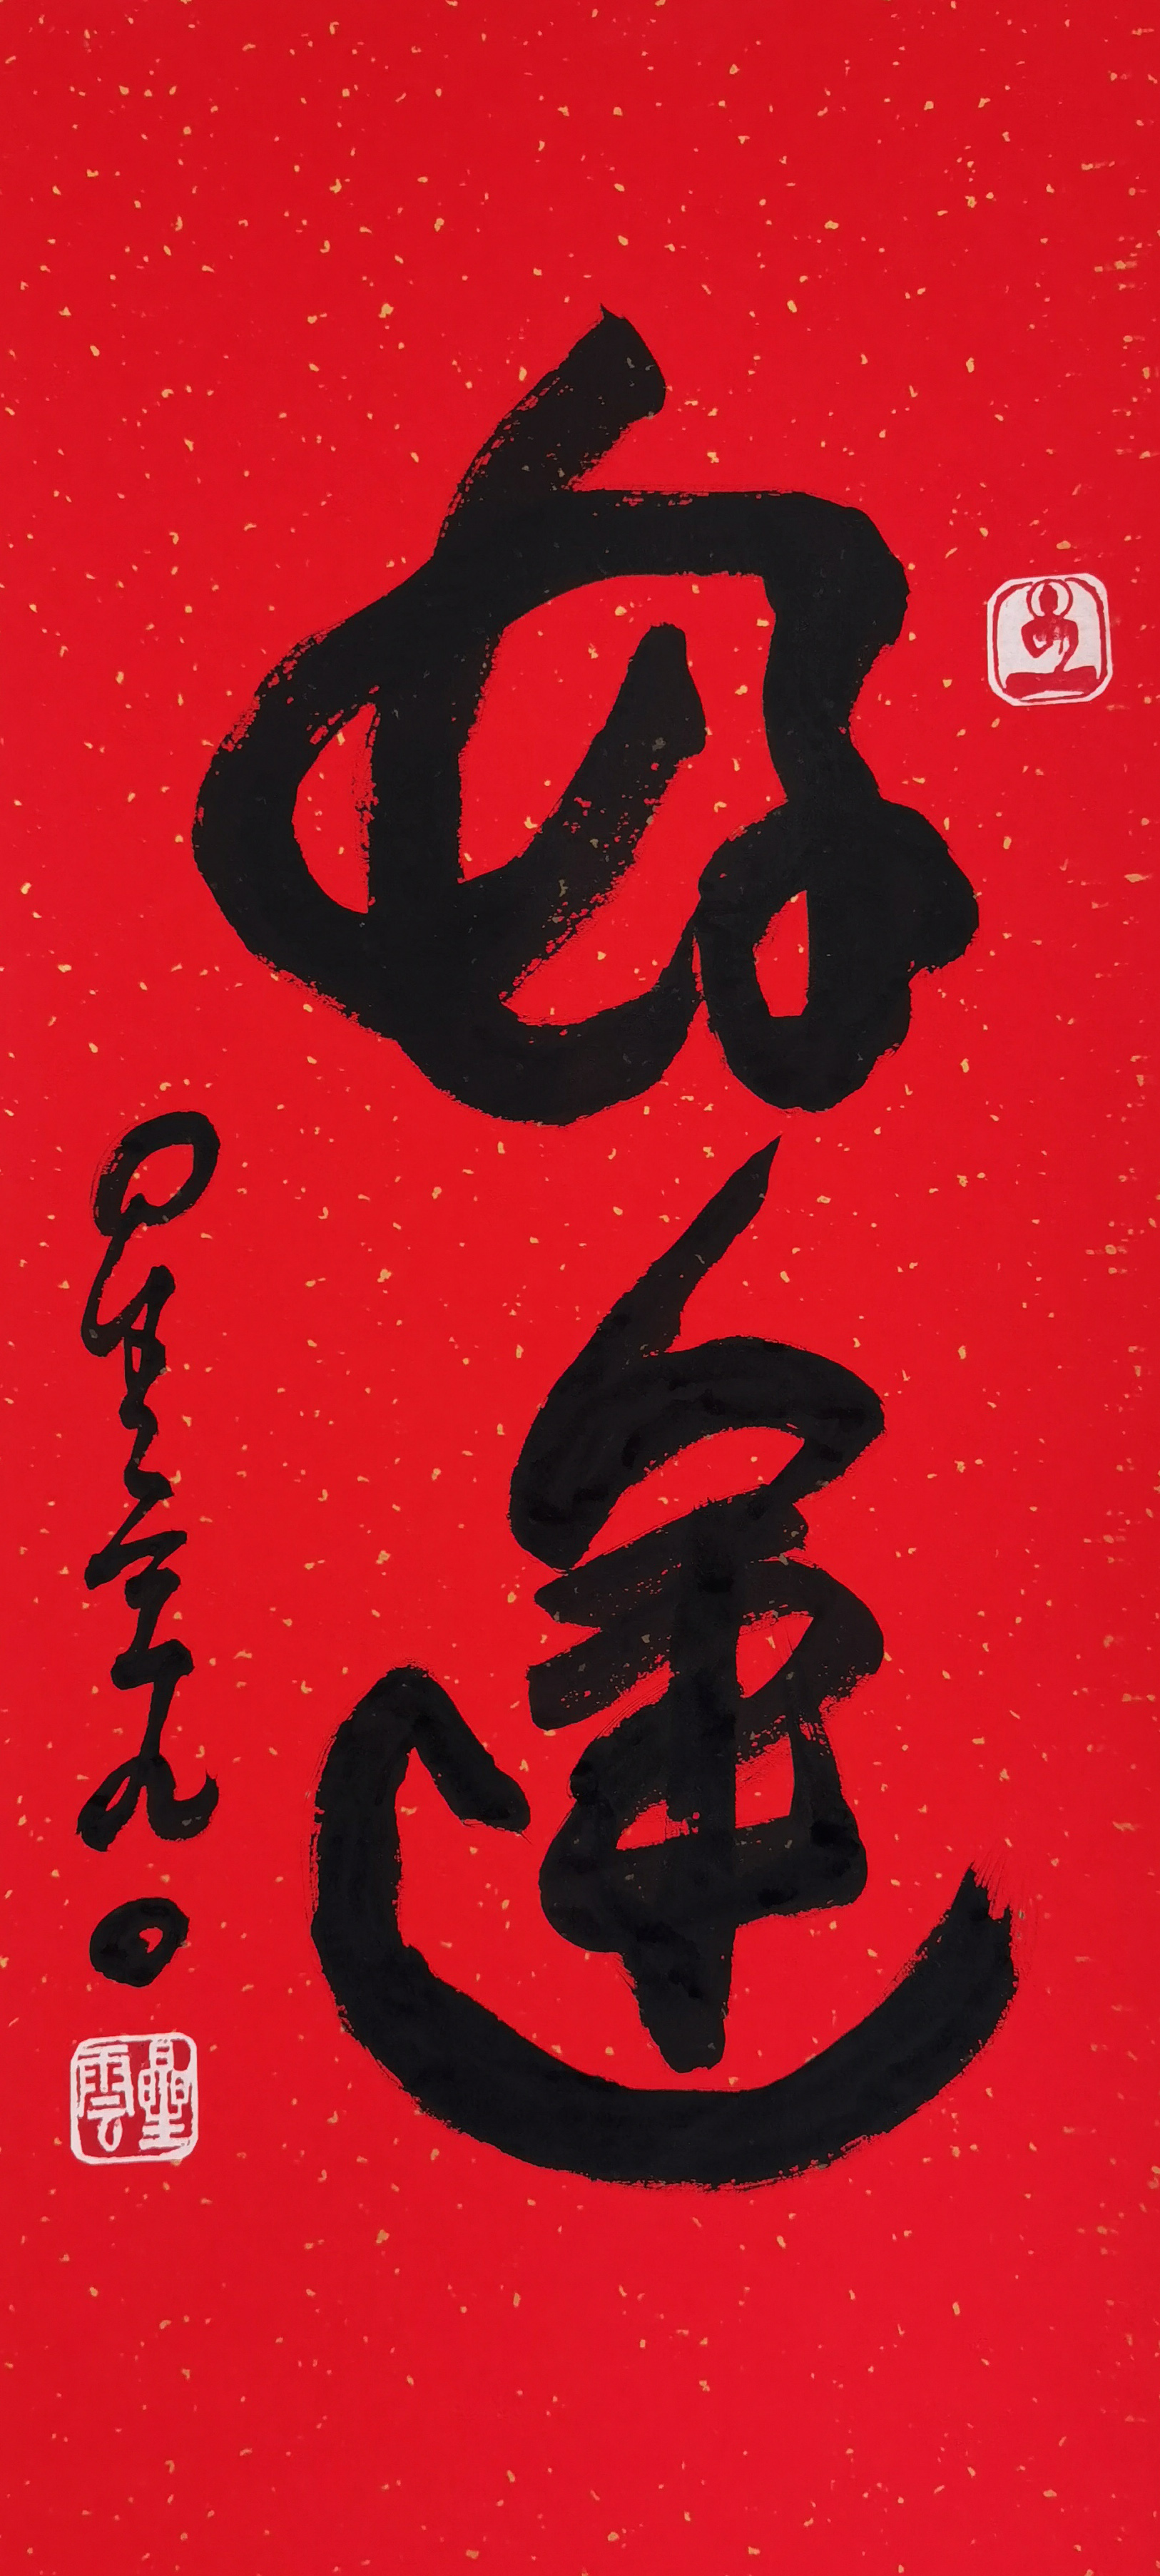 好運
星雲
星雲